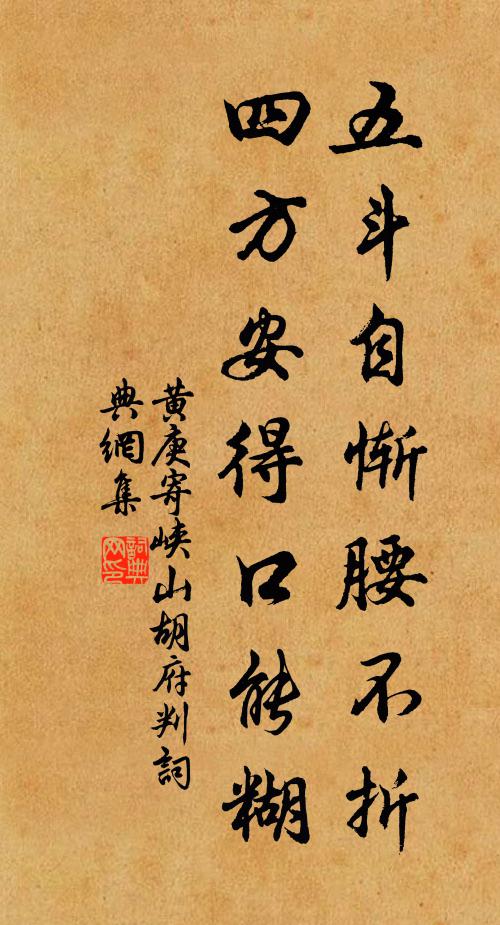 五斗自慚腰不折
四方安得口能糊
黄庚寄峡山胡府判詞
典網集
詞典
网印